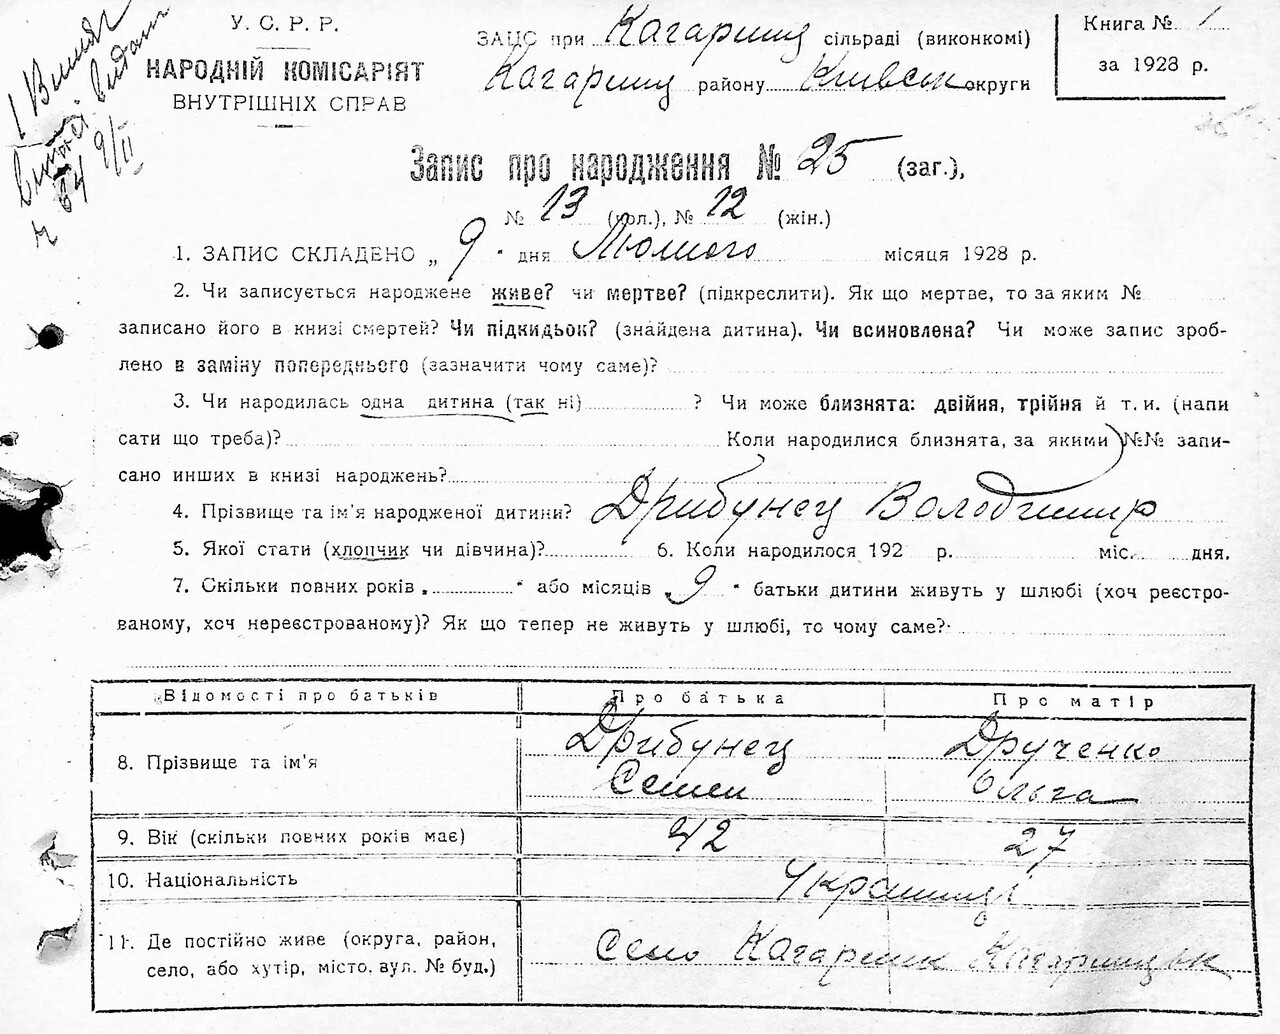 У. С. Р. Р.
НАРОДНІЙ КОМІСАРІЯТ
ВНУТРІШНІХ СПРАВ
ЗАЦС при Кагарлиц сільраді (виконкомі)
Кагарлиц району Київськ округи
Книга № 1
за 1928 р.
9/II
Запис про народження № 25 (заг.),
№ 13 (чол.), № 12 (жін.)
1. ЗАПИС СКЛАДЕНО „ 9 " дня Лютого місяця 1928 р.
2. Чи записується народжене живе? чи мертве? (підкреслити). Як що мертве, то за яким №
записано його в книзі смертей? Чи підкидьок? (знайдена дитина). Чи всиновлена? Чи може запис зроб-
лено в заміну попереднього (зазначити чому саме)?
3. Чи народилась одна дитина (так ні) ? Чи може близнята: двійня, трійня й т. и. (напи
сати що треба)? Коли народилися близнята, за якими №№ запи-
сано инших в книзі народжень?
4. Прізвище та ім'я народженої дитини? Дрибунец Володимир
5. Якої стати (хлопчик чи дівчина)? 6. Коли народилося 192 р. міс. дня.
7. Скільки повних років „ " або місяців „ 9 " батьки дитини живуть у шлюбі (хоч реєстро-
ваному, хоч нереєстрованому)? Як що тепер не живуть у шлюбі, то чому саме?
Відомості про батьків Про батька Про матір
8. Прізвище та ім'я Дрибунец Друченко
Семен Ольга
9. Вік (скільки повних років має) 42 27
10. Національність Українці
11. Де постійно живе (округа, район, село, або хутір, місто, вул. № буд.) Село Кагарлик Кагарлицьк